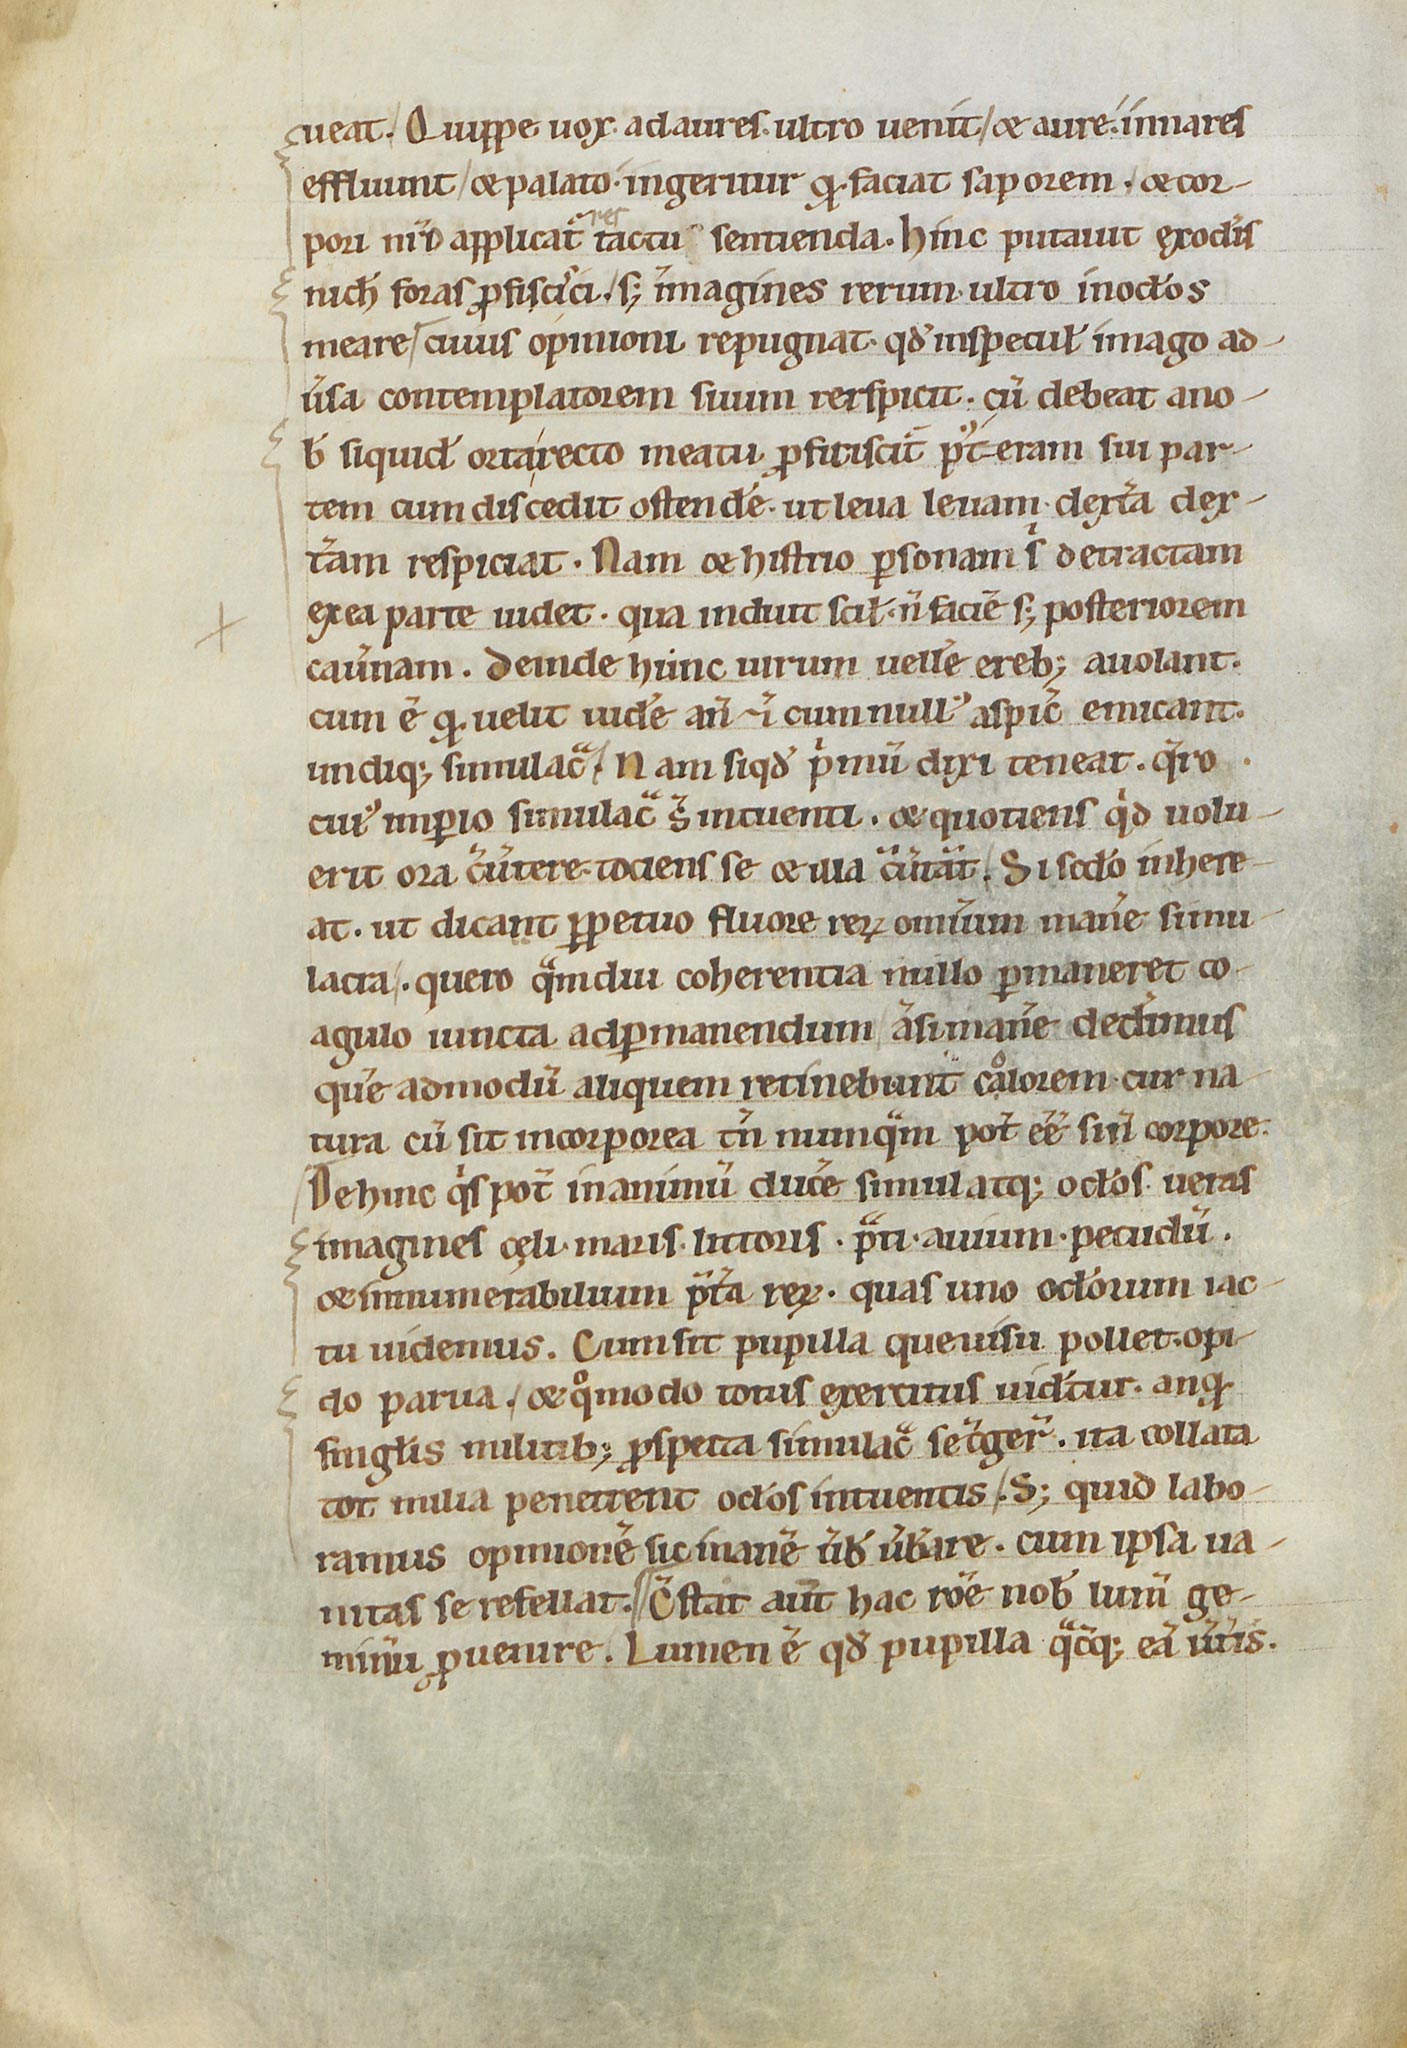 ueat. Quippe uox ad aures ultro uenit / & aurę in nares
effluunt / & palato ingeritur q̨ faciat saporem. / & cor-
pori nr̄o applicat̄ res tactu sentienda. hinc putauit ex oct̄is
nich̄ foras ꝓfiscisci. / s; imagines rerum ultro in oct̄os
meare / cuius opinioni repugnat. qđ in specul̄ imago ad-
ūsa contemplatorem suum rerspicit. cū debeat a no-
b̄ siquid̄ orta recto meatu ꝓfitiscit̄ p᷒t eram sui par-
tem cum discedit ostend̄e. ut leua leuam. dext̄a dex-
t̄am respiciat. Nam & histrio ꝑsonam s̄ detractam
ex ea parte uidet. qua induit scil̄. n̄ faciē s; posteriorem
cau̅nam. Deinde hunc uirum uelle ereb; auolant.
cum ē q̨ uelit uid̄e an̄ ī cum null᷒ aspic̄ emicant.
undiq; simulac̄ / Nam si qđ p̄mū dixi teneat. q̄ro
cui᷒ imꝑio simulac̄ s̄ intuenti. & quotiens qͥd uolu-
erit ora c̄ūtere. tociens se & illa c̄ūtāt. / Si sc̄do inhere-
at. ut dicant ꝑpetuo fluore reꝝ omnium man̄e simu-
lacra /. quero q̄mdiu coherentia nullo ꝑmaneret co-
agulo iuncta ad ꝑmanendum / ā si man̄e ded̄imus
que admodū aliquem retinebunt calorem. cur na-
tura cū sit incorporea tn̄ numq̄m pot̄ eē̄ sin̄ corpore.
Dehinc qͥs pot̄ in animū duc̄e simul atq; oct̄os. ueras
imagines cęli. maris. littoris. p̄ti. auium. pecudū.
& innumerabilium p̄t̄a reꝝ. quas uno oct̄orum iac-
tu uidemus. Cum sit pupilla que uisu pollet. opi-
do parua. / & qͦmodo totus exercitus uid̄tur. an q̨
singl̄is militib; ꝓspecta simulac̄ se c̄ger̄. ita collata
tot milia penetrent oct̄os intuentis /. S; quid labo-
ramus opinionē sic inanē ūb̄ ūb̄are. cum ipsa ua-
nitas se refellat. / C̄stat aut̄ hac rōe nob̄ lum̄ ge-
minū ꝓuenire. Lumen ē qđ pupilla q̄cq; eā ūtis.